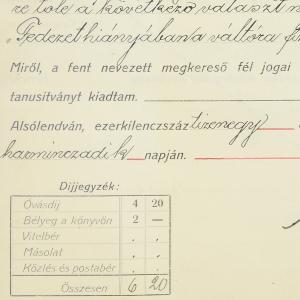 ze tőle a következő választ n
„Fedezet hiányjában a váltóra fiz
Miről, a fent nevezett megkereső fél jogai
tanusítványt kiadtam.
Alsólendván, ezerkilenczszáz tizenegy
harminczadik napján.
Díjjegyzék:
Óvásdíj 4 20
Bélyeg a könyvön 2 —
Vitelbér . .
Másolat . .
Közlés és postabér . .
Összesen 6 20